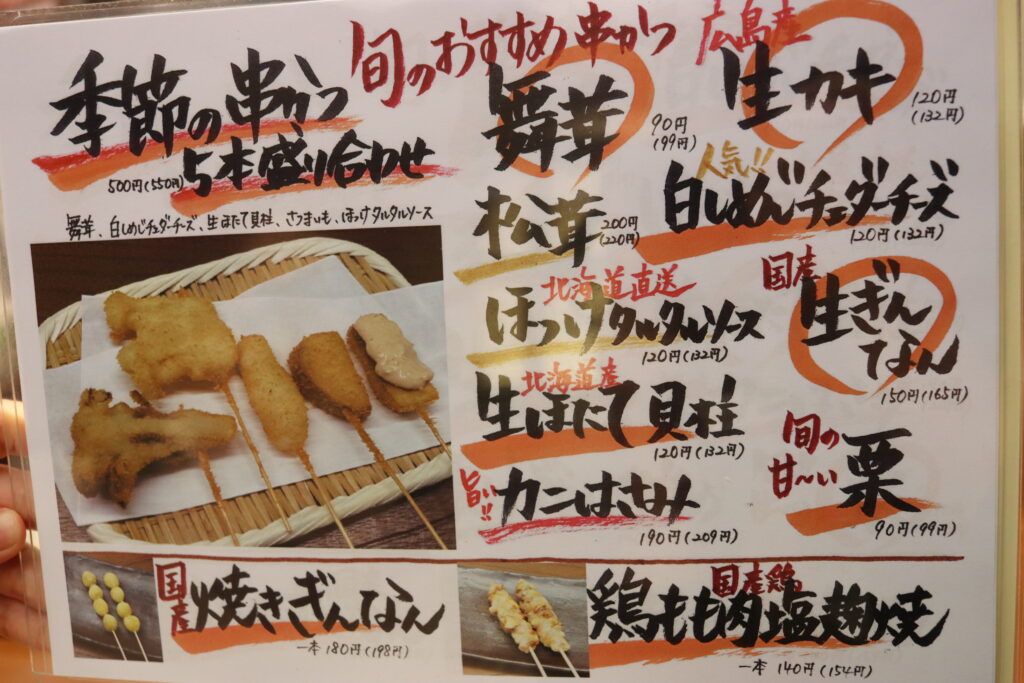 旬のおすすめ串かつ
季節の串かつ
5本盛り合わせ
500円(550円)
舞茸、白しめじチェダーチーズ、生ほたて貝柱、さつまいも、ほっけタルタルソース
舞茸
90円
(99円)
広島産
生カキ
120円
(132円)
松茸
200円
(220円)
人気!!
白しめじチェダーチーズ
120円(132円)
北海道直送
ほっけタルタルソース
120円(132円)
国産
生ぎん
なん
150円(165円)
北海道産
生ほたて貝柱
120円(132円)
旨い!!
カニはさみ
190円(209円)
旬の
甘〜い
栗
90円(99円)
国産
焼きぎんなん
一本 180円(198円)
国産鶏
鶏もも肉塩麹焼
一本 140円(154円)